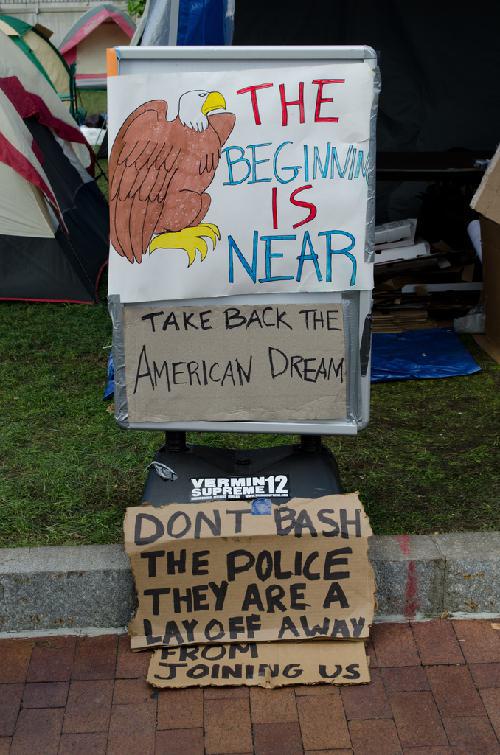 THE
BEGINNIN
IS
NEAR
TAKE BACK THE
AMERICAN DREAM
VERMIN
SUPREME 12
DONT BASH
THE POLICE
THEY ARE A
LAYOFF AWAY
FROM
JOINING US